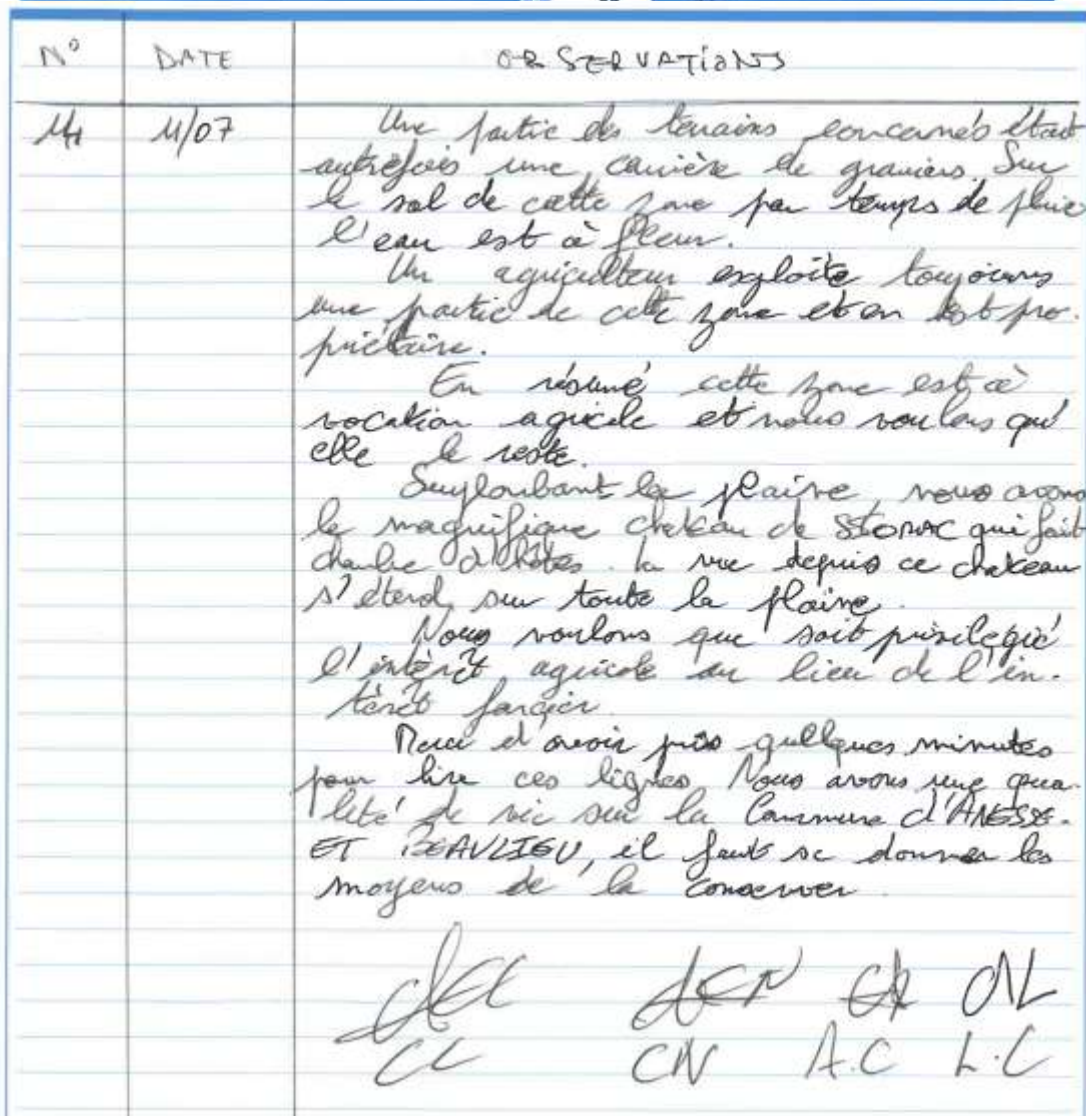 N° DATE OBSERVATIONS
11/07 Une partie des terrains concernés était
autrefois une carrière de graviers. Sur
le sol de cette zone par temps de pluie
l'eau est à fleur.
Un agriculteur exploite toujours
une partie de cette zone et en est pro.
priétaire.
En résumé cette zone est à
vocation agricole et nous voulons qu'
elle le reste.
Surplombant la plaine, nous avons
le magnifique chateau de qui fait
chambre d'hôtes. la vue depuis ce chateau
s'étend sur toute la plaine.
Nous voulons que soit privilegié
l'intérêt agricole au lieu de l'in-
térêt foncier.
Merci d'avoir pris quelques minutes
pour lire ces lignes. Nous avons une qua-
lité de vie sur la Commune d'ANESSE-
ET BEAULIEU, il faut se donner les
moyens de la conserver.
CL CN A.C L.C